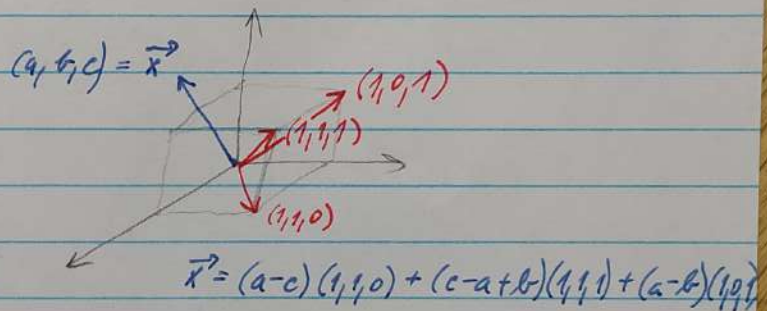 (a, b, c) = x⃗
(1,0,1)
(1,1,1)
(1,1,0)
x⃗ = (a-c)(1,1,0) + (c-a+b)(1,1,1) + (a-b)(1,0,1